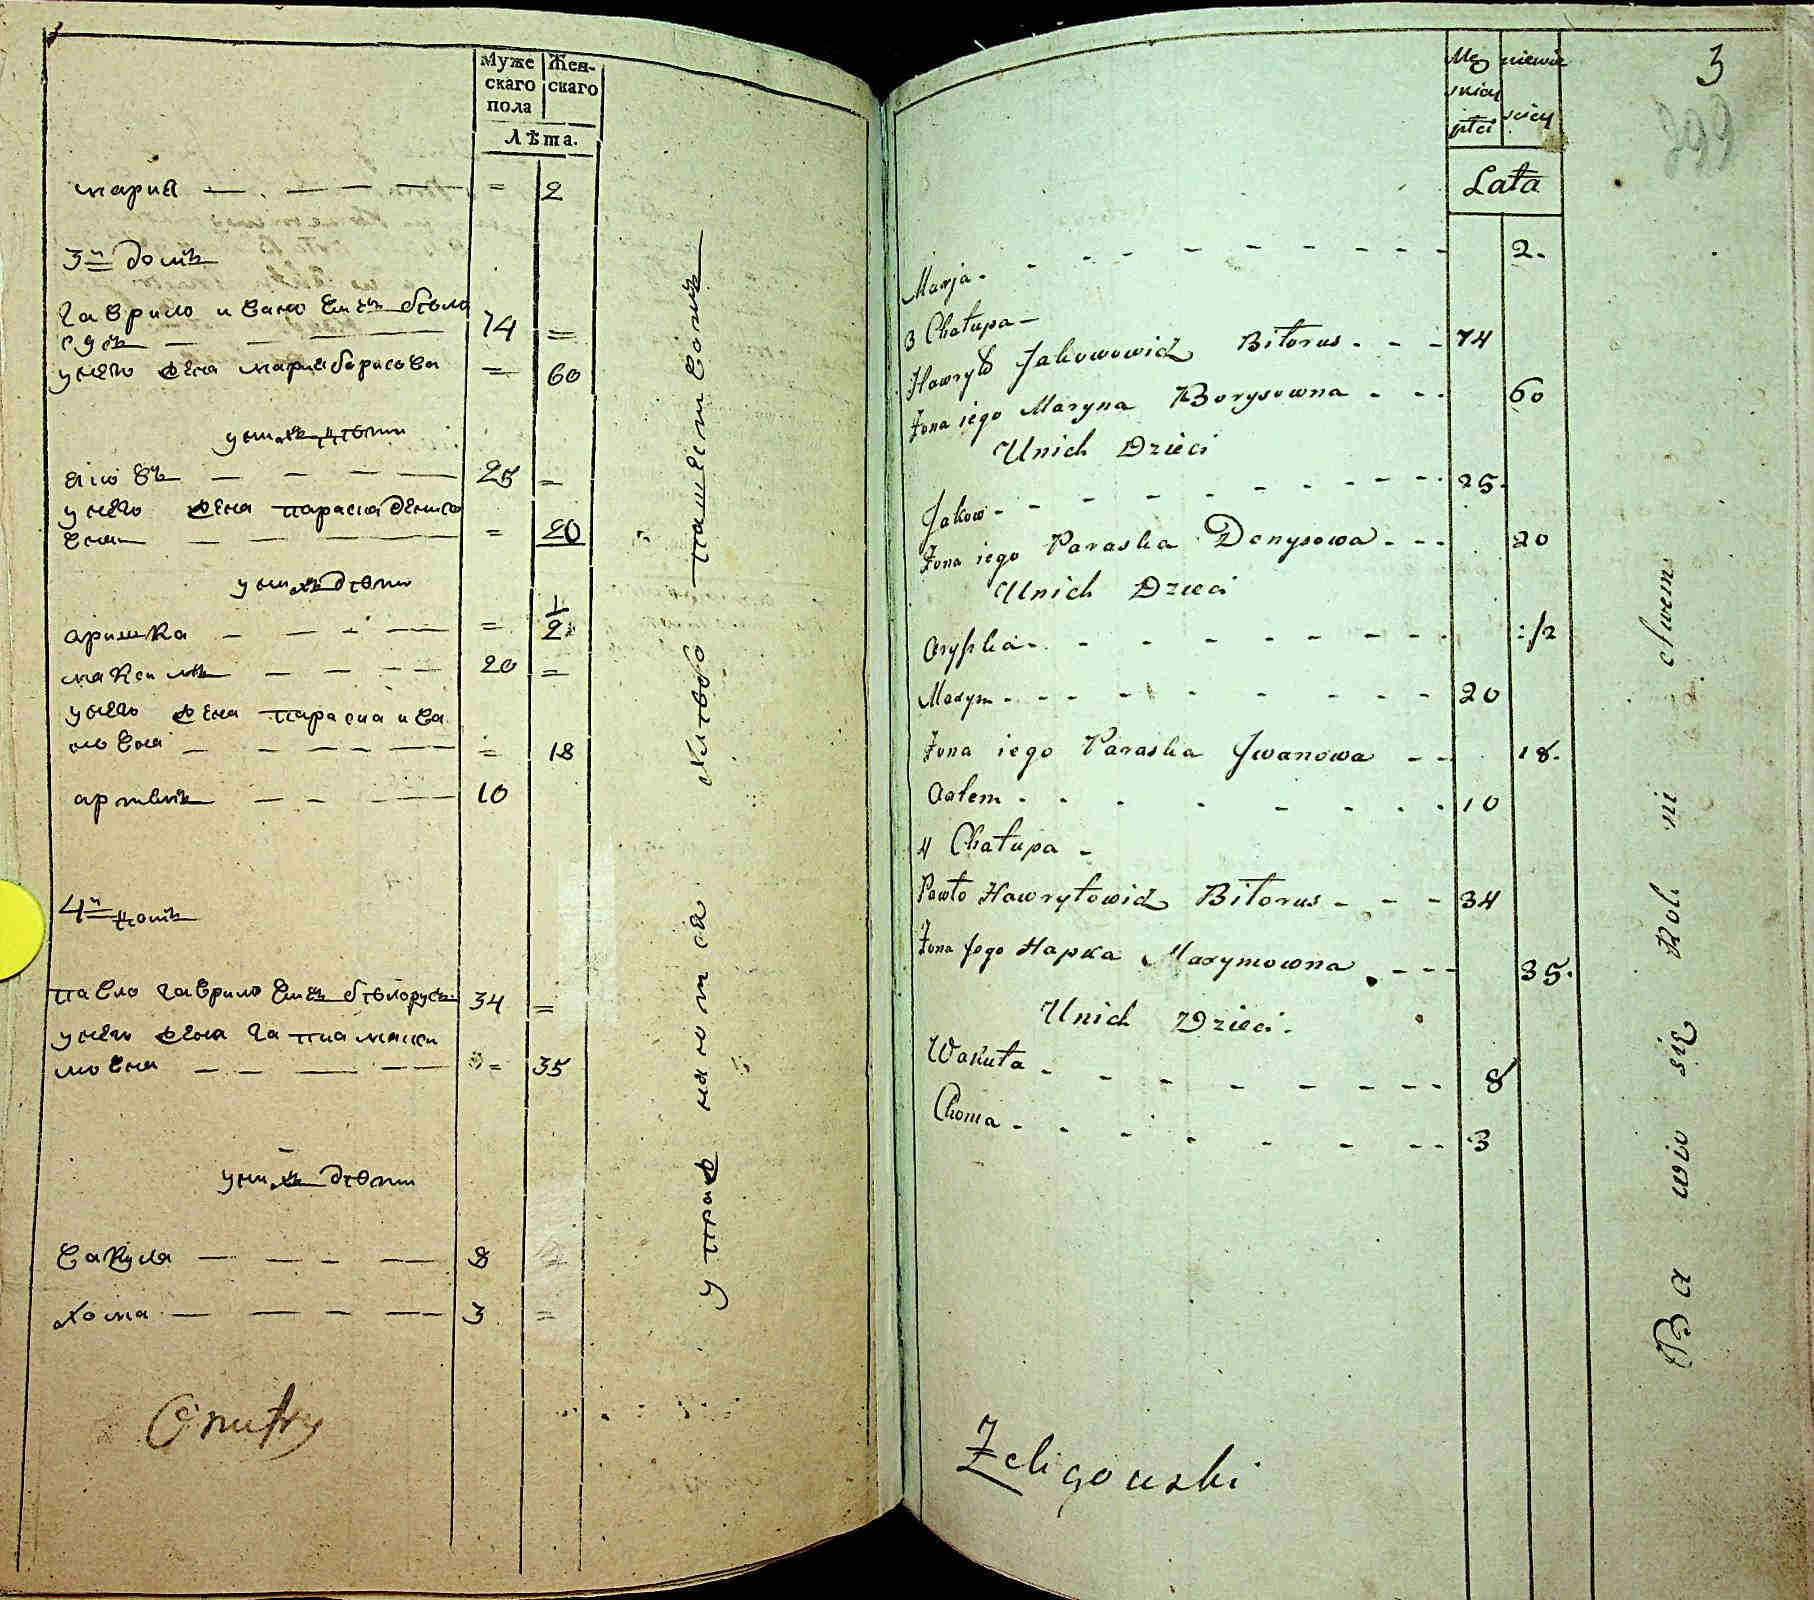 Муже
скаго
пола
Жен-
скаго
Лѣта.
мария — — — — = 2
3й домъ
гаврило иваковичъ бѣло
русъ — — — 74 =
у него жена мария борисова = 60
у нихъ дѣти
яковъ — — — — 25 =
у него жена параска денисо
вна — — — — = 20
у нихъ дѣти
аришка — — — — = 1/2
максимъ — — — — 20 =
у него жена параска ива
новна — — — — = 18
артемъ — — — 10
4й домъ
павло гавриловичъ бѣлорусъ 34 =
у него жена гапка макси
мовна — — — — = 35
у нихъ дѣти
вакула — — — — 8
хома — — — — 3 =
упражняются хлѣбопашествомъ
3
Męskiey
płci
niewieściey
Lata
Marja - - - - - - - 2.
3 Chałupa -
Hawryło Jakowowicz Biłorus - - - 74
Żona iego Maryna Borysowna - - - 60
Unich Dzieci
Jakow - - - - - - - 25.
Żona iego Paraska Denysowa - - - 20
Unich Dzieci
Oryszka - - - - - - - 1/2
Maxym - - - - - - - 20
Żona iego Paraska Jwanowa - - 18.
Artem - - - - - - - 10
4 Chałupa -
Pawło Hawryłowicz Biłorus - - - 34
Żona Jego Hapka Maxymowna - - - 35.
Unich Dzieci.
Wakuła - - - - - - - 8
Choma - - - - - - - 3
Żeligowski
Ba wio się Roli ni ctwem